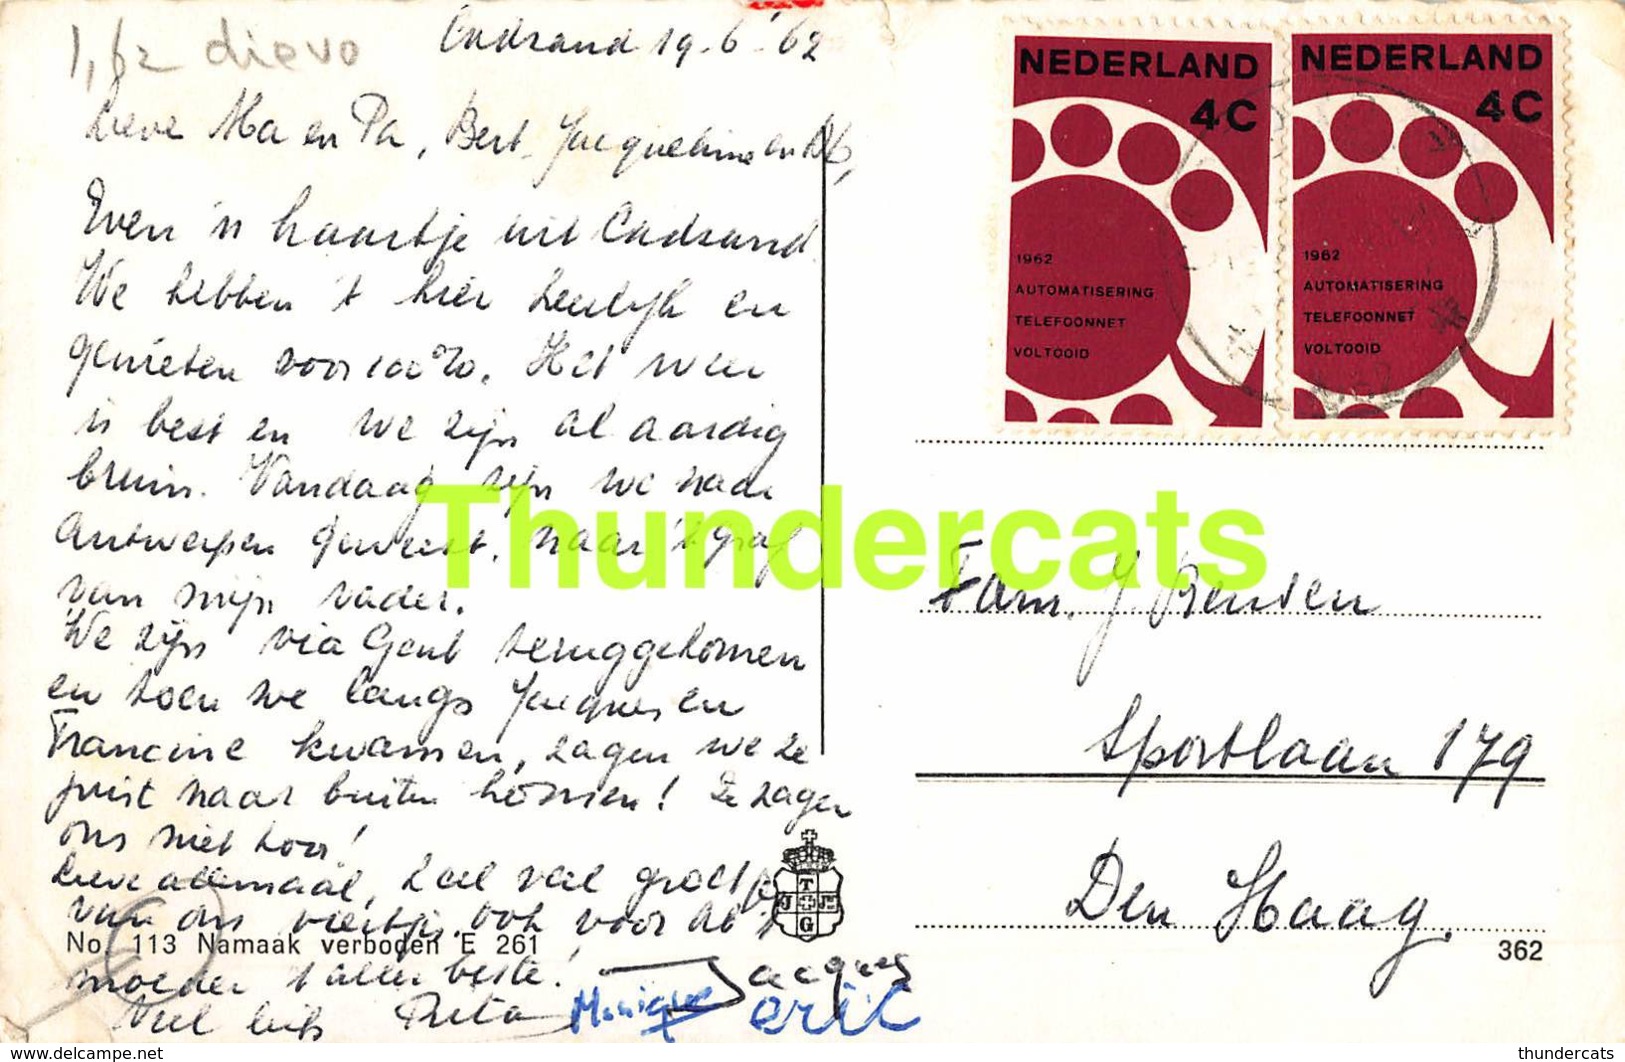 1,62 dievo
Cadzand 19-6-'62
Lieve Ma en Pa, Bert, Jacqueline en
Even 'n kaartje uit Cadzand
We hebben 't hier heerlijk en
genieten voor 100%. Het weer
is best en we zijn al aardig
bruin. Vandaag zijn we naar
Antwerpen geweest, naar 't graf
van mijn vader.
We zijn via Gent teruggekomen
en toen we langs Jacques en
Francine kwamen, zagen we ze
juist naar buiten komen! Ze zagen
ons niet hoor!
Lieve allemaal, heel veel groetjes
van ons viertjes. Ook voor
moeder 't allerbeste!
Veel liefs Rita Jacques
Monique eric
No. 113 Namaak verboden E 261
T
J E
G
NEDERLAND
4C
1962
AUTOMATISERING
TELEFOONNET
VOLTOOID
NEDERLAND
4C
1962
AUTOMATISERING
TELEFOONNET
VOLTOOID
Thundercats
Fam. J
Sportlaan 179
Den Haag.
362
www.delcampe.net
thundercats